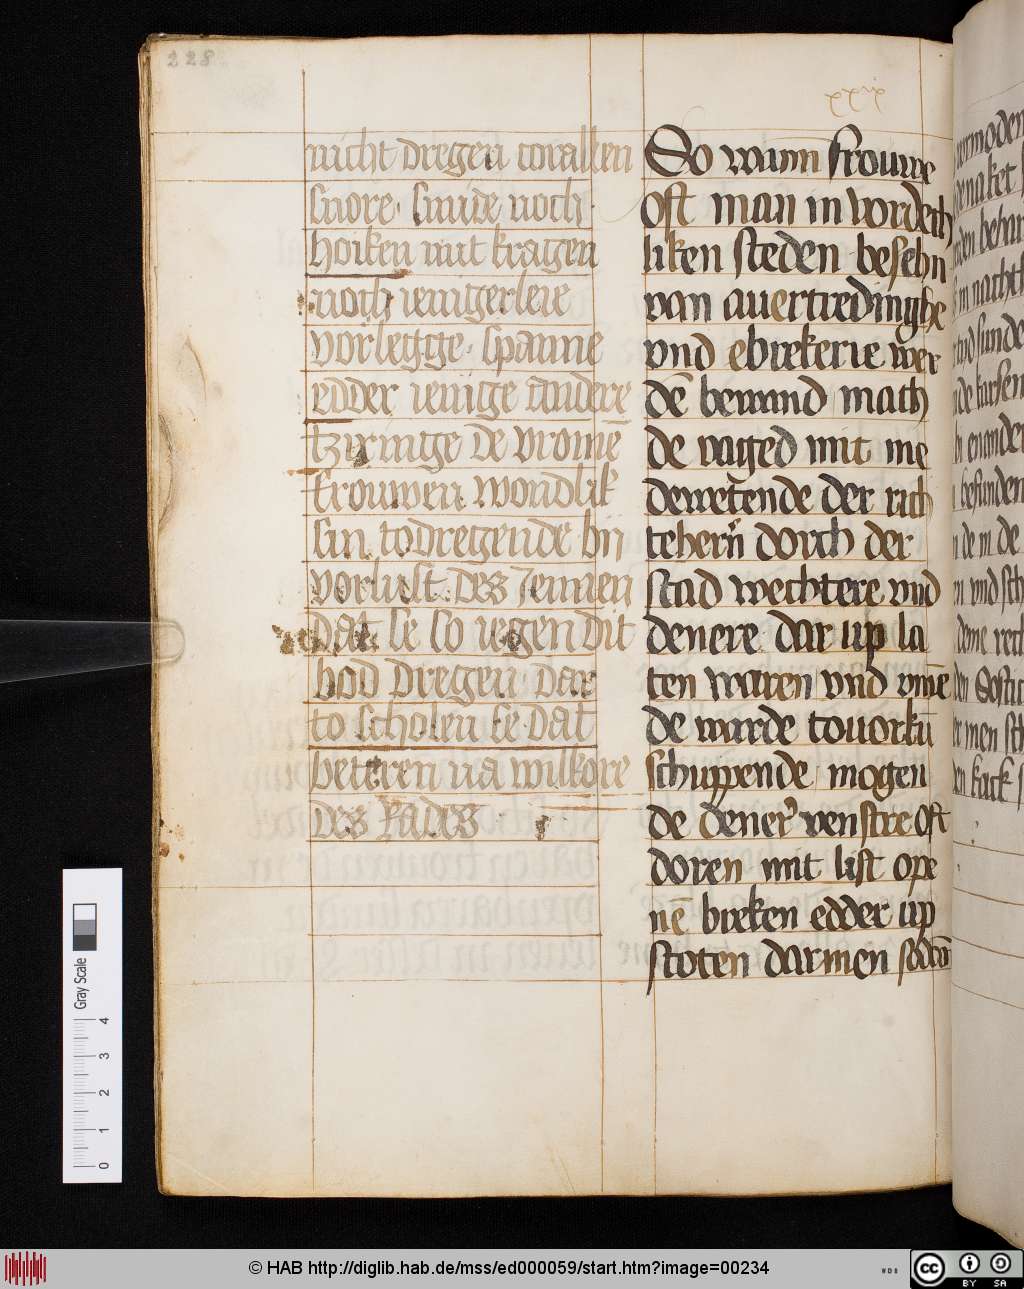 228
xxix
nicht dregen corallen
snore · smide noch
hoiken mit kragen
noch ienigerleie
vorlegge · spanne
edder ienige andere
tziringe de vromē
frouwen wondlik
sin todregende bij
vorlust des Jennen
dat se so iegen dit
bod dregen · dar
to scholen se dat
beteren na wilkore
des Rades
So wann frouwe
oft man in vordech
liken steden besehn
van auertredinghe
vnd ebrekerie wer
dē bewand mach
de vaged mit me
dewetende der rich
tehern dorch der
stad wechtere vnd
denere dar up la
ten waren vnd vmē
de warde touorkū
schuppende mogen
de dener venstre oft
doren mit list ope
nē breken edder up
stoten darmen sodan
ermoden
naket
den
in nachts
vnd sunde
de
enander
befunden
in de in de
vnd sch
deme rech
den
men sch
den kack
Gray Scale
4
3
2
1
0
© HAB http://diglib.hab.de/mss/ed000059/start.htm?image=00234
WDB
CC BY SA